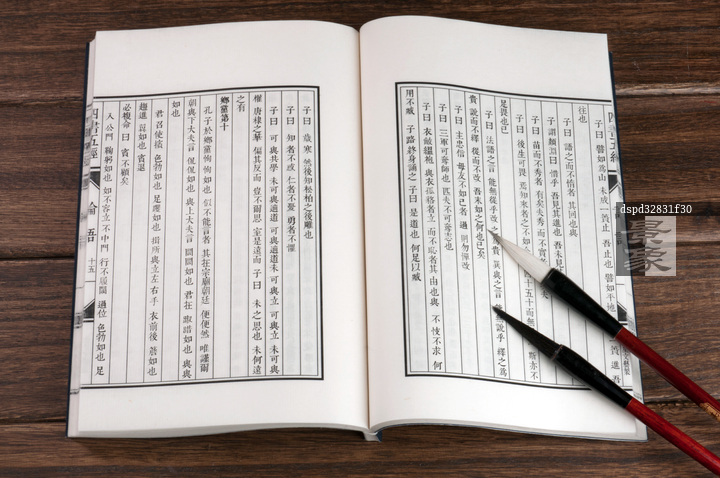 四書五經
子曰 譬如爲山 未成一簣 止 吾止也 譬如平地 簣 進 吾
往也
子曰 語之而不惰者 其回也與
子謂顏淵曰 惜乎 吾見其進也 吾未見
子曰 苗而不秀者 有矣夫 秀而不實
子曰 後生可畏 焉知來者之不如 十五十而無 斯亦不
足畏也已
子曰 法語之言 能無從乎 改之 貴 巽與之言 能無說乎 繹之爲
貴 說而不繹 從而不改 吾末如之何也已矣
子曰 主忠信 毋友不如己者 過 則勿憚改
子曰 三軍可奪帥也 匹夫不可奪志也
子曰 衣敝縕袍 與衣狐貉者立 而不恥者 其由也與 不忮不求 何
用不臧 子路終身誦之 子曰 是道也 何足以臧
子曰 歲寒 然後知松柏之後雕也
子曰 知者不惑 仁者不憂 勇者不懼
子曰 可與共學 未可與適道 可與適道 未可與立 可與立 未可與
權 唐棣之華 偏其反而 豈不爾思 室是遠而 子曰 未之思也 未何遠
之有
鄉黨第十
孔子於鄉黨 恂恂如也 似不能言者 其在宗廟朝廷 便便然 唯謹爾
朝與下大夫言 侃侃如也 與上大夫言 誾誾如也 君在 踧踖如也 與與
如也
君召使擯 色勃如也 足躩如也 揖所與立 左右手 衣前後 襜如也
趨進 翼如也 賓退
必複命曰 賓不顧矣
入公門 鞠躬如也 如不容 立不中門 行不履閾 過位 色勃如也 足
四書五經
論語
十五
dspd32831f30